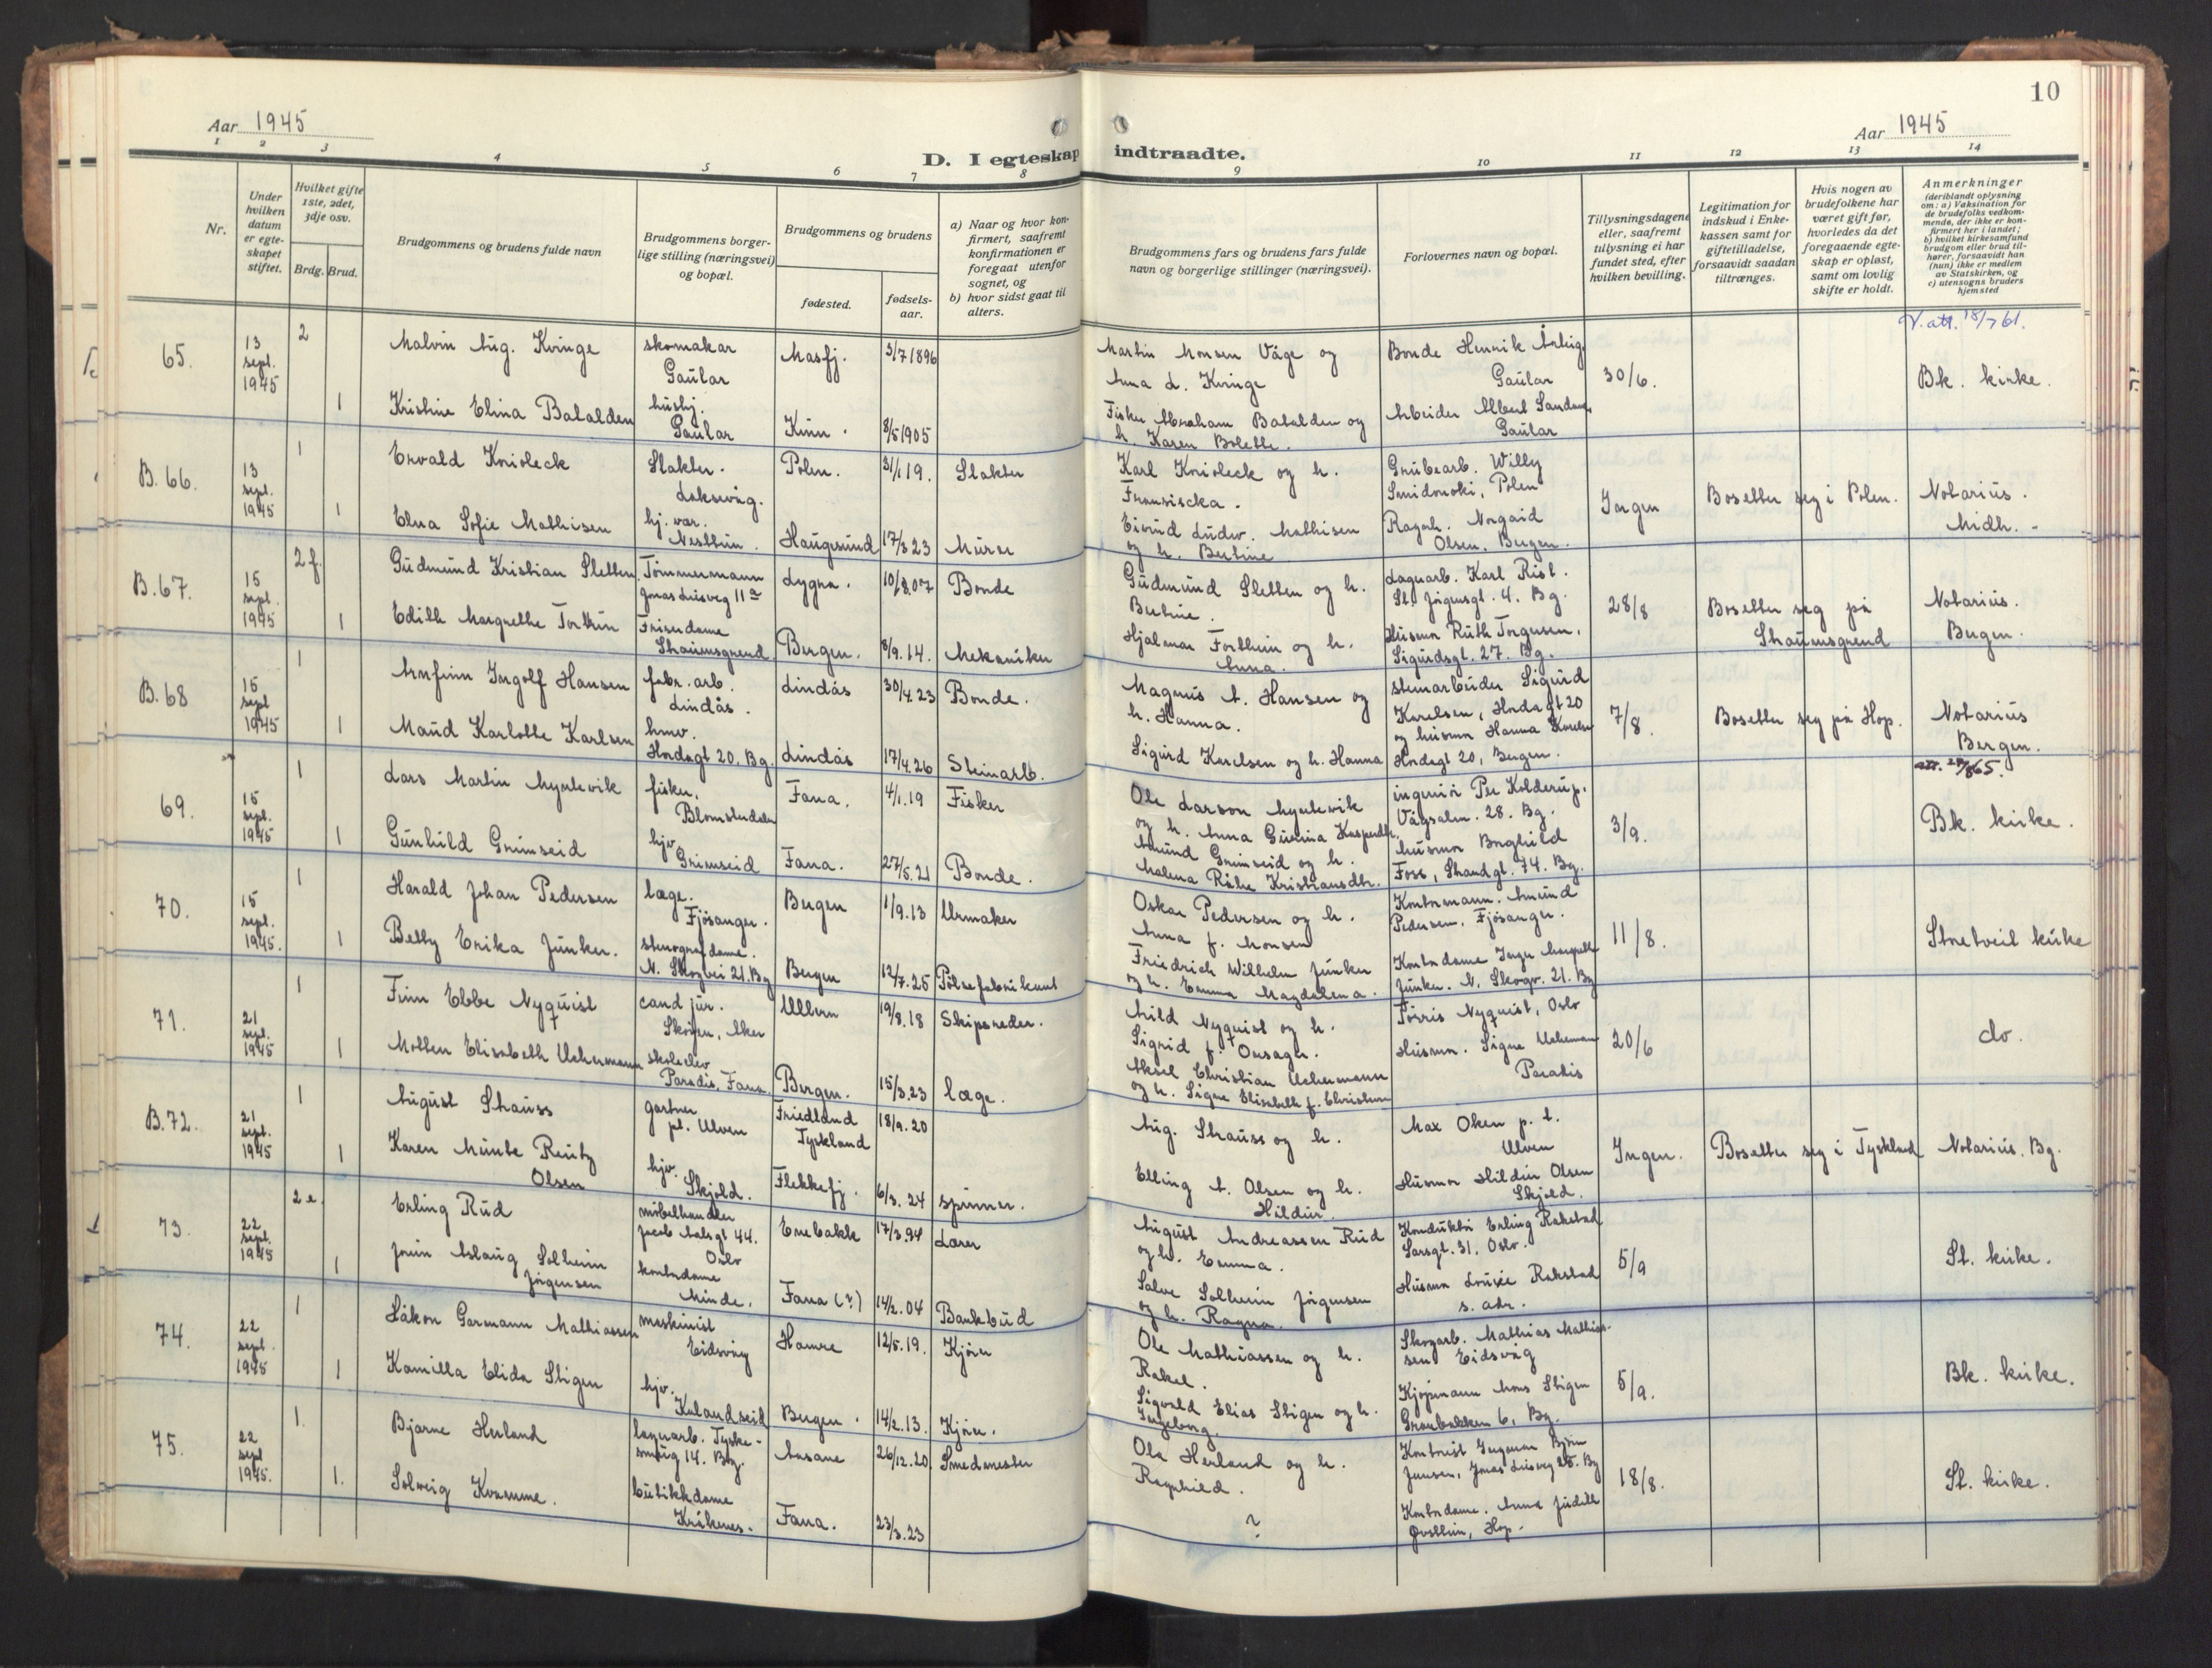 10
Aar 1945
Aar 1945
D. I egteskap indtraadte.
1 2 3 4 5 6 7 8 9 10 11 12 13 14
Nr.
Under hvilken datum er egte-skapet stiftet.
Hvilket gifte 1ste, 2det, 3dje osv.
Brdg. Brud.
Brudgommens og brudens fulde navn
Brudgommens borger-lige stilling (næringsvei) og bopæl.
Brudgommens og brudens
fødested.
fødsels-aar.
a) Naar og hvor kon-firmert, saafremt konfirmationen er foregaat utenfor sognet, og
b) hvor sidst gaat til alters.
Brudgommens fars og brudens fars fulde navn og borgerlige stillinger (næringsvei).
Forlovernes navn og bopæl.
Tillysningsdagene eller, saafremt tillysning ei har fundet sted, efter hvilken bevilling.
Legitimation for indskud i Enke-kassen samt for giftetilladelse, forsaavidt saadan tiltrænges.
Hvis nogen av brudefolkene har været gift før, hvorledes da det foregaaende egte-skap er opløst, samt om lovlig skifte er holdt.
Anmerkninger
(deriblandt oplysning om: a) Vaksination for de brudefolks vedkom-mende, der ikke er kon-firmert her i landet; b) hvilket kirkesamfund brudgom eller brud til-hører, forsaavidt han (hun) ikke er medlem av Statskirken, og c) utensogns bruders hjemsted
V. att. 18/7 61.
65. 13 sept. 1945 2 Malvin Aug. Kvinge skomakar Gaular Masfj. 3/7 1896
1 Kristine Elina Batalden hushj. Gaular Kinn. 8/5 1905
Martin Monsen Våge og Anna L. Kvinge
Fisker Abraham Batalden og h. Karen Bolette.
Bonde Henrik Gaular
Arbeider Albert Gaular
30/6. Bk. kirke.
B. 66. 13 sept. 1945 1 Ervald Knioleck Slakter. Laksevåg. Polen. 31/1 19. Slakter
1 Elna Sofie Mathisen hj. vær. Nesttun. Haugesund 17/3 23 Murer
Karl Knioleck og h. Fransiscka.
Eivind Ludv. Mathisen og h. Bertine
Grubearb. Willy Polen
Ragnh. Olsen, Bergen.
Ingen Bosetter seg i Polen. Notarius. Midh. -
B. 67. 15 sept. 1945 2 f. Gudmund Kristian Sletten Tømmermann Jonas Liesveg 11a Lygra. 10/8.07 Bonde
1 Edith Margrethe Forthun Friserdame Straumsgrend Bergen. 8/9.14. Mekaniker
Gudmund Sletten og h. Bertine.
Hjalmar Forthun og h. Anna.
Lagerarb. Karl Rist. St. Jørgensgt. 4. Bg.
Husmor Ruth Torgersen, Sigurdsgt. 27. Bg.
28/8 Bosetter seg på Straumsgrend Notarius. Bergen.
B. 68 15 sept 1945 1 Arnfinn Ingolf Hansen fabr. arb. Lindås. Lindås 30/4.23 Bonde.
1 Maud Karlotte Karlsen hmv. Hordagt 20. Bg. Lindås 17/4.26 Steinarb.
Magnus A. Hansen og h. Hanna.
Sigurd Karelsen og h. Hanna
stenarbeider Sigurd Karelsen, Hordagt 20 og husmor Hanna Karelsen Hordagt 20, Bergen.
7/8. Bosetter seg på Hop. Notarius Bergen.
69. 15 sept. 1945 1 Lars Martin Myrlevik fisker, Blomsterdalen Fana. 4/1.19 Fisker
1 Gunhild Grimseid hjv. Grimseid Fana. 27/5.21 Bonde.
Ole Larson Myrlevik og h. Anna Gurina Kasperdtr.
Amund Grimseid og h. Malena Råke Kristiansdtr.
ingeniør Per Kolderup, Vågsalm. 28. Bg.
husmor Borghild Foss, Strandgt. 74. Bg.
3/9. att. 65. Bk. kirke.
70. 15 sept. 1945. 1 Harald Johan Pedersen læge. Fjøsanger. Bergen 1/9.13 Urmaker
1 Betty Erika Junker. stenografdame. N. Skogvei 21. Bg Bergen 12/7.25 Pølsefabrikant
Oskar Pedersen og h. Anna f. Monsen
Friedrich Wilhelm Junker og h. Emma Magdalena.
Kontormann. Amund Pedersen, Fjøsanger.
Kontordame Inger Margrethe Junker. N. Skogv. 21. Bg
11/8. Storetveit kirke
71. 21 sept. 1945 1 Finn Ebbe Nyquist cand jur. Skøyen, Aker Ullern 19/8.18 Skipsreder.
1 Motten Elisabeth Uchermann skoleelev Paradis, Fana Bergen. 15/3.23 læge.
Mild Nyquist og h. Sigrid f. Onsager.
Aksel Christian Uchermann og h. Signe Elisabeth f. Christensen
Tørris Nyquist, Oslo
Husmor. Signe Uchermann Paradis
20/6 do.
B. 72. 21 sept. 1945 1 August Strauss gartner pt. Ulven Friedland Tyskland 18/9.20
1 Karen Munte Reutz Olsen hjv. Skjold. Flekkefj. 6/3.24 spinner.
Aug. Strauss og h.
Elling A. Olsen og h. Hildur.
Max Oken p. t. Ulven
Husmor Hildur Olsen Skjold.
Ingen. Bosetter seg i Tyskland Notarius. Bg.
73. 22 sept. 1945 2 e. Erling Rud møbelhandler Jacob Aalsgt 44. Oslo Enebakk 17/3.94 Lærer
1 Jorun Aslaug Solheim Jørgensen kontordame Minde. Fana (?) 14/2.04 Bankbud
August Andreassen Rud og h. Emma.
Salve Solheim Jørgensen og h. Ragna.
Konduktør Erling Rakstad Sarsgt. 31. Oslo.
Husmor Louise Rakstad s. adr.
5/9 St. kirke.
74. 22 sept. 1945 1 Håkon Garmann Mathiassen maskinist Eidsvåg Hamre 12/5.19. Kjører
1 Kamilla Elida Stigen hjv. Kalandseid Bergen. 14/2.13. Kjører.
Ole Mathiassen og h. Rakel.
Sigvald Elias Stigen og h. Ingeborg.
Skogarb. Mathias Mathiassen Eidsvåg
Kjøpmann Mons Stigen 6, Bg.
5/9. Bk. kirke.
75. 22 sept 1945. 1. Bjarne Herland lagerarb. Tyskesmaug 14. Bg. Aasane 26/12.20. Smedmester
1. Solveig Kvamme. butikkdame Kråkenes. Fana. 23/3.23
Ola Herland og h. Ragnhild.
?
Kontorist Ingemar Bjørn Jansen, Jonas Liesveg 25. Bg
Kontordame. Anna Judith Østthun, Hop.
18/8. St. kirke.